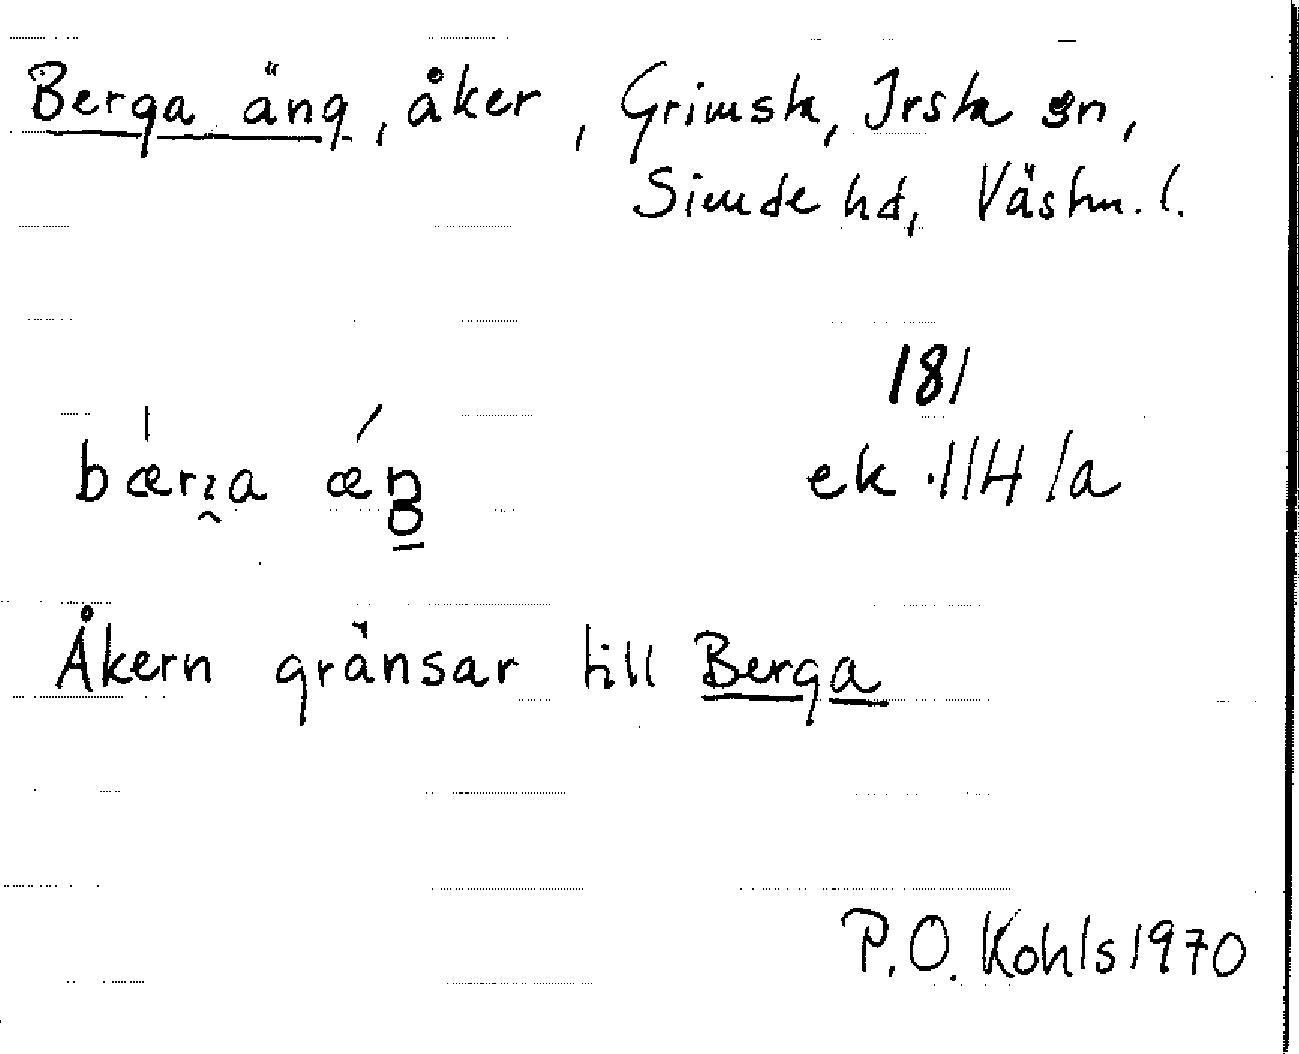 Berga äng, åker, Grimsta, Irsta sn,
Simde hd, Västm. l.
181
ek 114/a
Åkern gränsar till Berga
P.O. Kohls 1970